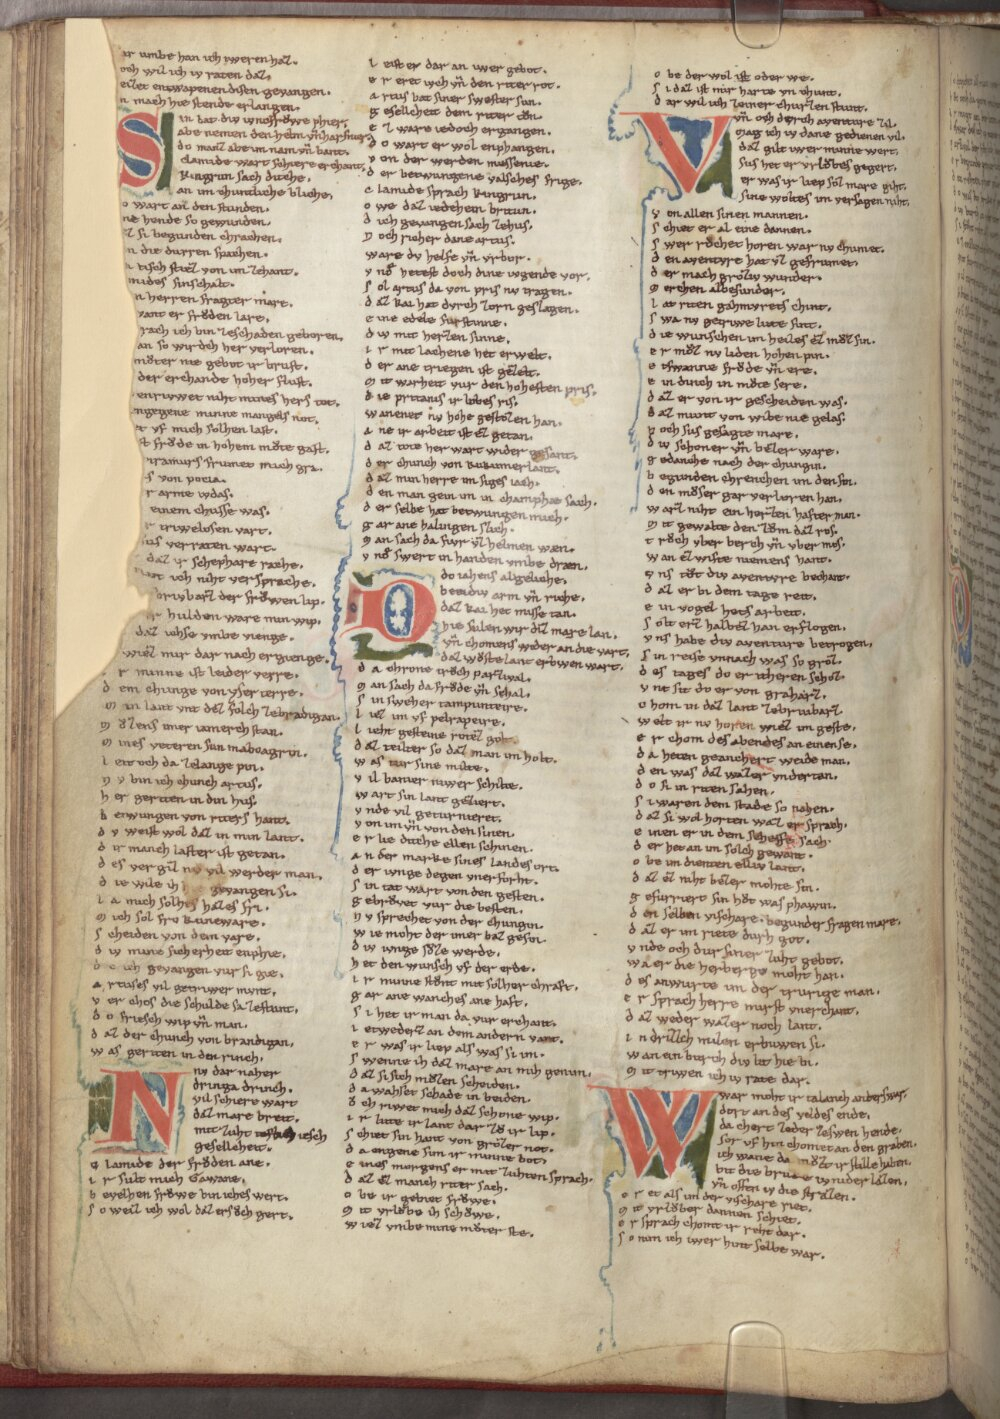 ir umbe han ich sweren haʒ.
och wil ich iv raten daʒ.
entwapenen disen gevangen.
mach hie stende erlangen.
S in bat div
abe nemen den helm vn̄
do manʒ abe im nam vn̄ bant.
clamide wart schiere erchant.
kingrun sach diche.
an im chuntliche bliche.
o wart an den stunden.
ne hende so gewunden.
ʒ si begunden chrachen.
n die durren spachen.
n tisch stieʒ von im ʒehant.
mides sinschalt.
n herren fragter mare.
vant er fröden lare.
rach ich bin ʒeschaden geboren.
an so wirdech her verloren.
möter nie gebot ir brust.
der erchande hoher flust.
enrivwet niht mines hers tot.
ngegene minne mangels not.
et vf mich solhen last.
st fröde in hohem möte gast.
iramurs frumet mich gra.
s von pocia.
r arme ivdas.
einem chusse was.
r triwelosen vart.
us verraten wart.
daʒ ir schephare rache.
not ich niht versprache.
der fröwen lip.
r hulden ware min wip.
daʒ ichse vmbe vienge.
swieʒ mir dar nach ergienge.
r minne ist leider verre.
d em chunge von yserterre.
m in lant vnt deʒ folch ʒebradigan.
m ölens imer iamerch stan.
m ines veteren sun mabonagrin.
l eit och da ʒelange pin.
n v bin ich chunch artus.
h er geriten in din hus.
b etwungen von riters hant.
d v weist wol daʒ in min lant.
d ir manch laster ist getan.
d es vergiʒ nv vil werder man.
d ie wile ih gevangen si.
l a mich solhes haʒes fri.
m ich sol fro kuneware.
s cheiden von dem vare.
d iv mine sicherheit enphie.
d o ich gevangen fur si gie.
a rtuses vil getriwer munt.
v er chos die schulde sa ʒestunt.
d o friesch wip vn̄ man.
d aʒ der chunch von brandigan.
w as geriten in den rinch.
N nv dar naher
dringa drinch.
vil schiere wart
daʒ mare breit.
mit ʒuht iesch
geselleheit.
c lamide der fröden ane.
i r sult mich Gawane.
b evelhen fröwe bin iches wert.
s o weiʒ ich wol daʒ ersöch gert.
l eist er dar an iwer gebot.
e r eret iwch vn̄ den riter rot.
a rtus bat siner swester sun.
g esellicheit dem riter tön.
e ʒ ware iedoch ergangen.
d o wart er wol enphangen.
v on der werden massenie.
d er betwungene valsches frige.
c lamide sprach kingrun.
o we daʒ iedehein britun.
d ich gevangen sach ʒehus.
n och richer dane artus.
ware dv helfe vn̄ vrbor.
v nö hetest doch dine ivgende vor.
s ol artus da von pris nv tragen.
d aʒ kai hat dvrch ʒorn geslagen.
e ine edele furstinne.
d iv mit herʒen sinne.
i r mit lachene het erwelt.
d er ane triegen ist geʒelt.
m it warheit vur den hohesten pris.
d ie pritanis ir lobes ris.
wanent nv hohe gestoʒen han.
a ne ir arbeit ist eʒ getan.
d aʒ tote her wart wider gesant.
d er chunch von kukumerlant.
d aʒ min herre im siges iach.
d en man gein im in champhse sach.
d er selbe hat betwungen mich.
g ar ane halingen slich.
m an sach da fivr vʒ helmen waen.
v nö swert in handen vmbe draen.
D do iahens algeliche.
beidiv arm vn̄ riche.
daʒ kai het missetan.
hie sulen wir diʒ mare lan.
vn̄ chomens weder an die vart.
daʒ wöste lant erbwen wart.
d a chrone tröch parʒival.
m an sach da fröde vn̄ schal.
s in sweher tampunteire.
l ieʒ im vf pelrapeire.
l ieht gesteine roteʒ golt.
d aʒ teilter so daʒ man im holt.
w as dur sine milte.
v il banier niwer schilte.
w art sin lant geʒiert.
v nde vil geturnieret.
v on im vn̄ von den sinen.
e r lie diche ellen schinen.
a n der marke sines landes ort.
d er ivnge degen vnerforht.
s in tat wart von den gesten.
g ebröuet vur die besten.
n v sprechet von der chungin.
w ie moht der imer baʒ gesin.
d iv ivnge söʒe werde.
h et den wunsch vf der erde.
i r minne stönt mit solher chraft.
g ar ane wanches ane haft.
s i het ir man da vur erchant.
i etwederʒ an dem andern vant.
e r was ir liep als was si im.
s wenne ih daʒ mare an mih genim.
d aʒ si sich möʒen scheiden.
d a wahset schade in beiden.
ö ch riwet mich daʒ schone wip.
i r lute ir lant darʒö ir lip.
s chiet sin hant von groʒer not.
d a engene sim ir minne bot.
e ines morgens er mit ʒuhten sprach.
d aʒ eʒ manch riter sach.
o be ir gebiet fröwe.
m it vrlöbe ih schöwe.
w ieʒ vmbe mine möter ste.
o be der wol ist oder we.
s i daʒ ist mir harte vn chunt.
d ar wil ich ʒeiner churʒen stunt.
V vn̄ och dvrch aventure ʒil.
mag ich iv dane gedienen vil.
daʒ gilt iwer minne wert.
sus het er vrlöbes gegert.
er was ir liep söʒ mare giht.
sine woltes im versagen niht.
v on allen sinen mannen.
s chiet er al eine dannen.
s wer röchet horen war nv chumet.
d en aventvre hat vʒ gefrumet.
d er mach gröʒiv wunder.
m erchen albesunder.
l at riten gahmvrets chint.
s wa nv getriwe livte sint.
d ie wunschen im heiles eʒ möʒ sin.
e r möʒ nv liden hohen pin.
e tswanne fröde vn̄ ere.
e in dinch in möte sere.
d aʒ er von ir gescheiden was.
d aʒ munt von wibe nie gelas.
n och sus gesagte mare.
d iv schoner vn̄ beʒer ware.
g edanche nach der chungin.
b egunden chrenchen im den sin.
d en möser gar verloren han.
warʒ niht ein herʒen hafter man.
m it gewalte den ʒöm daʒ ros.
t röch vber berch vn̄ vber mos.
w an eʒ wiste niemens hant.
v ns töt div aventvre bechant.
d aʒ er bi dem tage reit.
e in vogel hets arbeit.
s olt erʒ halbeʒ han erflogen.
v ns habe div aventure betrogen.
s in reise vnnach was so groʒ.
d es tages do er itheren schoʒ.
v nt sit do er von graharʒ.
c hom in daʒ lant ʒebribarʒ.
w elt ir nv horen wieʒ im geste.
e r chom des abendes an einen se.
d a heten geanchert weide man.
d en was daʒ waʒer vndertan.
d o si in riten sahen.
s i waren dem stade so nahen.
d aʒ si wol horten waʒ er sprach.
e inen er in dem scheffe sach.
d er het an im solch gewant.
o be im dienten elliv lant.
d aʒ eʒ niht beʒer mohte sin.
g efurriert sin höt was phawin.
d en selben vischare begunder fragen mare.
d aʒ er im riete durh got.
v nde och dur siner ʒuht gebot.
wa er die herberge moht han.
d es anwurte im der trurige man.
e r sprach herre mirst vnerchant.
d aʒ weder waʒer noch lant.
i n driʒʒich milen erbuwen si.
w an ein burch div lit hie bi.
m it triwen ich iv rate dar.
W war moht ir talanch anderswar.
dort an des veldes ende.
da chert ʒeder ʒeswen hende.
sor vf hin chomet an den graben.
ich wane da möʒt ir stille haben.
bit die bruke iv nider laʒen.
vn̄ offen iv die straʒen.
e r tet als im der vischare riet.
m it vrlöber dannen schiet.
e r sprach chomt ir reht dar.
s o nim ich iwer hint selbe war.